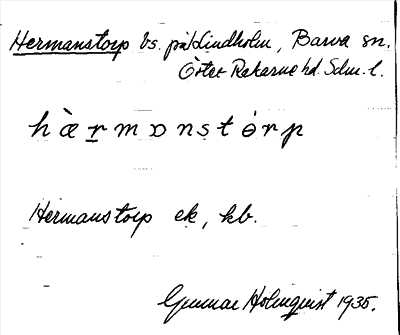 Hermanstorp bs. på Lindholm, Barva sn.
Öster Rekarne hd. Sdm. l.
hæ̀rmɒnstȯrp
Hermanstorp ek, kb.
Gunnar Holmquist 1935.